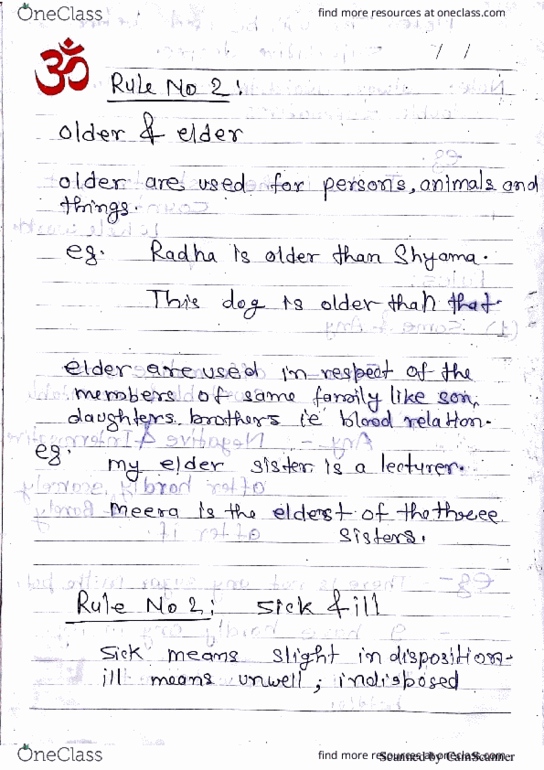 OneClass
find more resources at oneclass.com
ॐ
/ /
Rule No 2:
older & elder
older are used for persons, animals and
things.
eg. Radha is older than Shyama.
This dog is older than that.
elder are used in respect of the
members of same family like son,
daughters, brothers ie blood relation.
eg. my elder sister is a lecturer.
Meera is the eldest of the three
sisters.
Rule No 2: sick & ill
sick means slight indisposition-
ill means unwell; indisposed
OneClass
find more resources at oneclass.com
Scanned by CamScanner